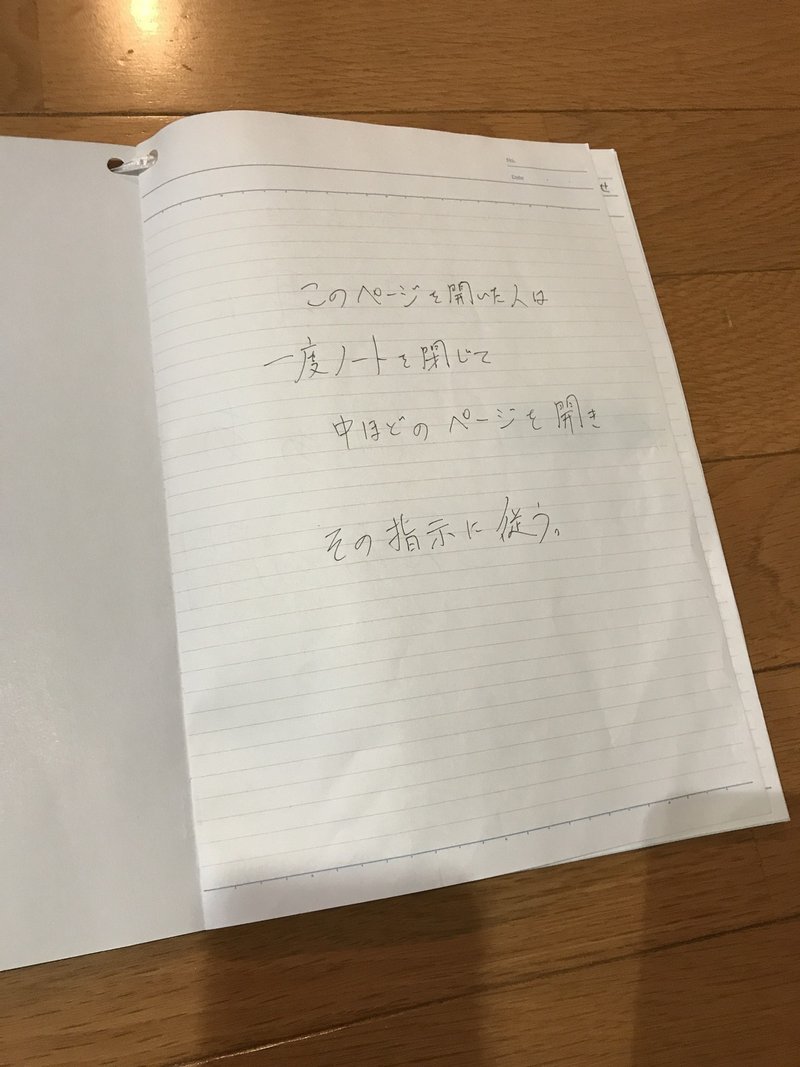 No.
Date
せ
このページを開いた人は
一度ノートを閉じて
中ほどのページを開き
その指示に従う。